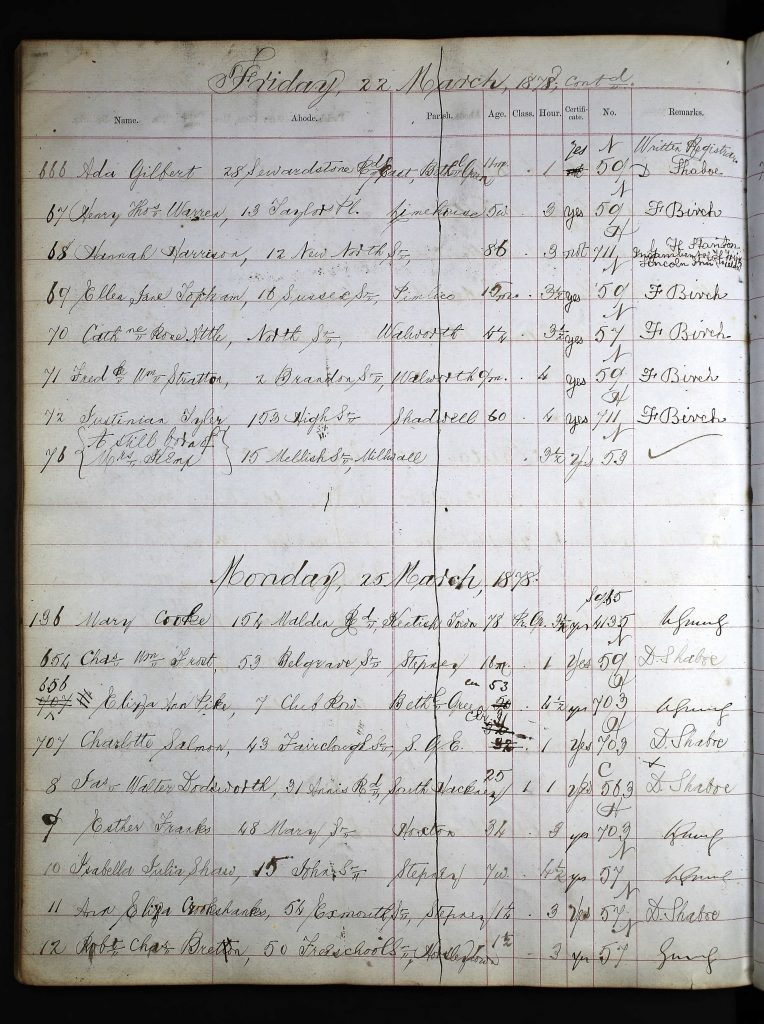 Friday, 22 March, 1878, Contd.
Name. Abode. Parish. Age. Class. Hour. Certificate. No. Remarks.
yes N Written Registrar
666 Ada Gilbert 28 Sewardstone Rd East, Beth. Green 11m . 1 59 D Shaboe
N
67 Henry Thos Warren, 13 Taylor Pl. Limehouse 5w . 3 yes 59 F Birch
H
68 Hannah Harrison, 12 New North St, 86 . 3 not 711
N
69 Ellen Jane Topham, 16 Sussex St, Pimlico 15m. 3½ yes 59 F Birch
N
70 Cathne Rose Attle, North St, Walworth 4½ 3½ yes 57 F Birch
N
71 Fred Wm Stratton, 2 Brandon St, Walworth 9m. . 4 yes 59 F Birch
H
72 Justinian Tyler 153 High St Shadwell 60 . 4 yes 711 F Birch
N
76 { A still born of Mrs Kemp } 15 Mellish St, Millwall . 3½ Yes 53 ✓
Monday, 25 March, 1878.
136 Mary Cooke 154 Malden Rd, Kentish Town 78 3½ yes 4135
N
654 Chas Wm Frost, 53 Belgrave St Stepney 10m . 1 Yes 59 D. Shaboe
656 53 H
Eliza Ann Pike, 7 Club Row Beth. Green . 4½ yes 703
H
707 Charlotte Salmon, 43 Fairclough St, S. G. E. . 1 Yes 703 D. Shaboe
25 C
8 Jas Walter Dodsworth, 31 Annis Rd, South Hackney 1 1 yes 563 D. Shaboe
H
9 Esther Franks 48 Mary St Hoxton 34 . 3 yes 703
N
10 Isabella Julia Shaw, 15 John St Stepney 7w. . 4½ yes 57
N
11 Ann Eliza Crookshanks, 54 Exmouth St, Stepney 1½ . 3 Yes 57 D. Shaboe
N
12 Robt Chas Bretton, 50 Freeschool St, Horsleydown 1½ . 3 yes 57